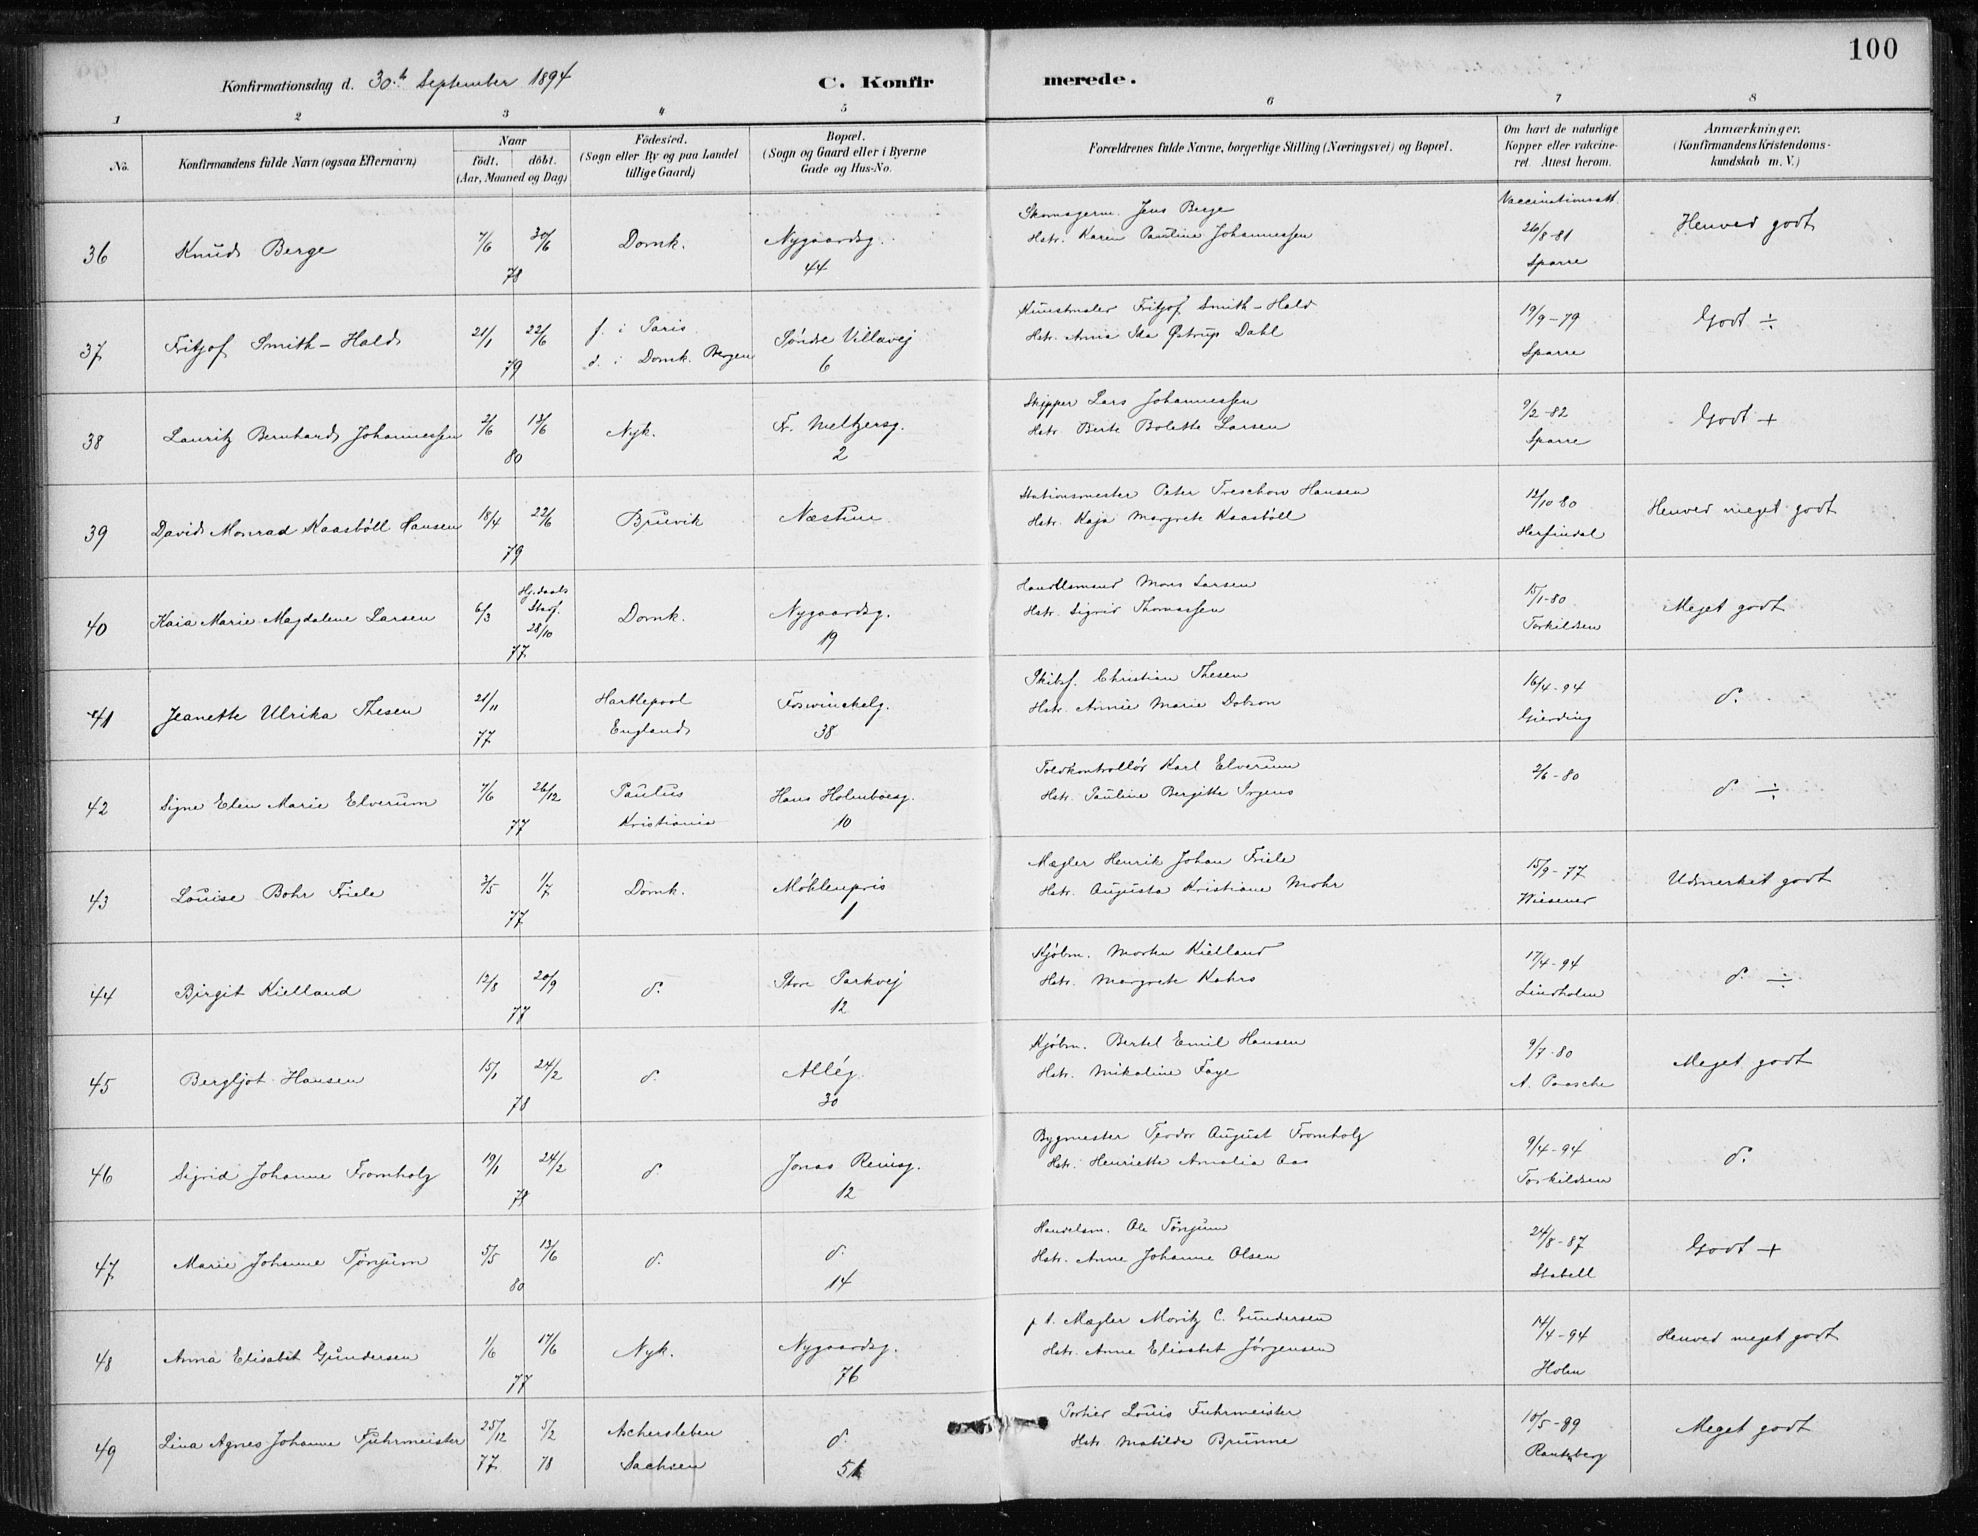 100
Konfirmationsdag d. 30te September 1894
C. Konfirmerede.
1 2 3 4 5 6 7 8
No.
Konfirmandens fulde Navn (ogsaa Efternavn)
Naar
födt. döbt.
(Aar, Maaned og Dag)
Födested.
(Sogn eller By og paa Landet
tillige Gaard)
Bopæl.
(Sogn og Gaard eller i Byerne
Gade og Hus-No.
Forældrenes fulde Navne, borgerlige Stilling (Næringsvei) og Bopæl.
Om havt de naturlige
Kopper eller vakcine-
ret. Attest herom.
Anmærkninger.
(Konfirmandens Kristendoms-
kundskab m. V.)
36 Knud Berge 7/6 30/6 78 Domk. Nygaardsg. 44
Skomagerm. Jens Berge
Hstr. Karen Pauline Johannessen
Vaccinationsatt. 26/8-81 Sparre
Henved godt
37 Fritjof Smith-Hald 21/1 22/6 79 f. i Paris d. i Domk. Bergen Söndre Villavej 6
Kunstmaler Fritjof Smith-Hald
Hstr. Anna Ida Østrup Dahl
19/9-79 Sparre
Godt ÷
38 Lauritz Bernhard Johannessen 2/6 13/6 80 Nyk. Fr. Meltzersg. 2
Skipper Lars Johannessen
Hstr. Berte Bolette Larsen
9/2-82 Sparre
Godt +
39 David Monrad Kaasböll Hansen 18/4 22/6 79 Bruvik Næstun
Stationsmester Peter Treschow Hansen
Hstr. Kaja Margrete Kaasböll
12/10 80 Herfindal
Henved meget godt
40 Kaia Marie Magdalene Larsen 6/3 Hj.daab Stadf. 28/10 77 Domk. Nygaardsg. 19
Handlsmand Mons Larsen
Hstr. Sigrid Thomassen
15/1-80 Torkildsen
Meget godt
41 Jeanette Ulrika Thesen 21/11 77 Hartlepool England Fosswinckelg. 38
Skibsf. Christian Thesen
Hstr. Annie Marie Dobson
16/4-94 Gierding
d.
42 Signe Elen Marie Elverum 7/6 26/12 77 Paulus Kristiania Hans Holmboesg. 10
Toldkontrollör Karl Elverum
Hstr. Pauline Bergitte Irgens
2/6-80
d. ÷
43 Louise Bohr Friele 3/5 1/7 77 Domk. Möhlenpris 1
Mægler Henrik Johan Friele
Hstr. Augusta Kristiane Mohr
15/9-77 Wiesener
Udmerket godt
44 Birgit Kielland 12/8 20/9 77 d. Store Parkvej 12
Kjöbm. Morten Kielland
Hstr. Margrete Kahrs
17/4-94 Lindholm
d. ÷
45 Bergljot Hansen 15/1 24/2 78 d. Allég. 30
Kjöbm. Bertel Emil Hansen
Hstr. Mikaline Faye
9/7-80 A. Paasche
Meget godt
46 Sigrid Johanne Fromholz 19/1 24/2 78 d. Jonas Reinsg. 12
Bygmester Teodor August Fromholz
Hstr. Henriette Amalia Aas
9/4-94 Torkildsen
d.
47 Marie Johanne Tönjum 5/5 13/6 80 d. d. 14
Handelsm. Ole Tönjum
Hstr. Anne Johanne Olsen
24/8-87 Stabell
Godt +
48 Anna Elisabet Gundersen 1/6 17/6 77 Nyk. Nygaardsg. 76
p t. Mægler Moritz C. Gundersen
Hstr. Anne Elisabet Jörgensen
14/4-94 Holm
Henved meget godt
49 Lina Agnes Johanne Fuhrmeister 25/12 77 5/2 78 Achersleben Sachsen d. 51
Portier Louis Fuhrmeister
Hstr Matilde Brünne
10/5-89 Rantzberg
Meget godt